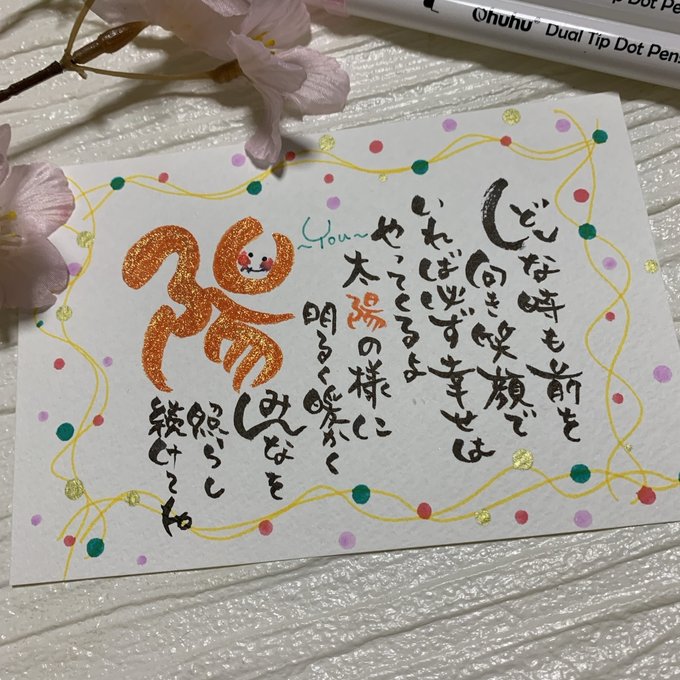 どんな時も前を
向き笑顔で
いれば必ず幸せは
やってくるよ
太陽の様に
明るく暖かく
みんなを
照らし
続けてね
陽
~You~
Ohuhu® Dual Tip Dot Pens
Tip Dot Pe